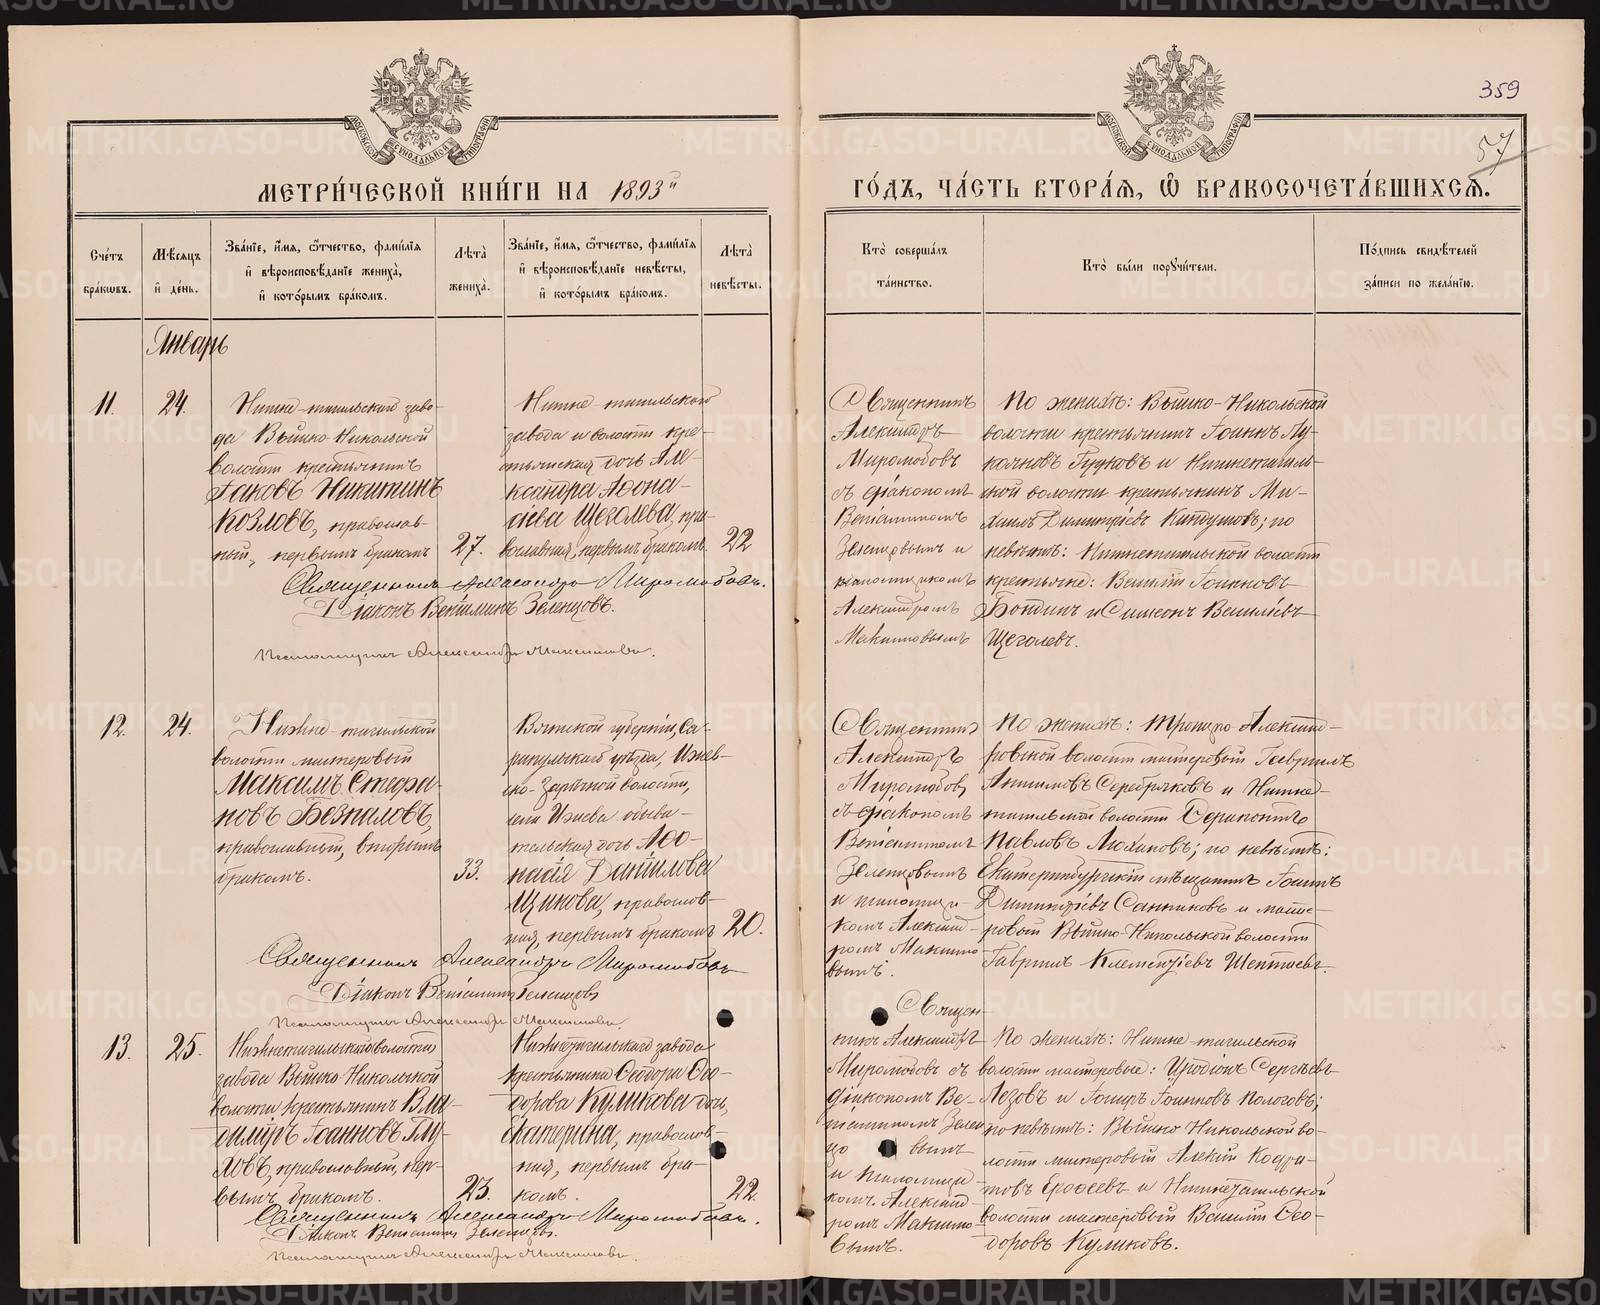 359
57
МОСКОВСКОЙ СѴНОДАЛЬНОЙ ТИПОГРАФІИ
МОСКОВСКОЙ СѴНОДАЛЬНОЙ ТИПОГРАФІИ
МЕТРИ́ЧЕСКОЙ КНИ́ГИ НА 1893й
ГО́ДЪ, ЧА́СТЬ ВТОРА́Я, Ѽ БРАКОСОЧЕТА́ВШИХСЯ.
Сче́тъ бра́кѡвъ.
Мѣ́сяцъ и҆ де́нь.
Зва́нїе, и҆́мя, ѻ҆́тчество, фами́лїя и҆ вѣроисповѣ́данїе жениха̀, и҆ кото́рымъ бра́комъ.
Лѣта̀ жениха̀.
Зва́нїе, и҆́мя, ѻ҆́тчество, фами́лїя и҆ вѣроисповѣ́данїе невѣ́сты, и҆ кото́рымъ бра́комъ.
Лѣта̀ невѣ́сты.
Кто̀ соверша́лъ та́инство.
Кто̀ бы́ли порꙋчи́тели.
По́дпись свидѣ́телей за́писи по жела́нїю.
Январь
11.
24.
Нижне-тагильскаго заво-
да Выйско-Никольской
волости крестьянинъ
Іаковъ Никитинъ
Козловъ, православ-
ный, первымъ бракомъ
27.
Нижне-тагильскаго
завода и волости кре-
стьянская дочь Але-
ксандра Аѳона-
сіева Щеголева, пра-
вославная, первымъ бракомъ.
22
Священникъ
Александръ
Миролюбовъ
съ діакономъ
Веніаминомъ
Зеленцовымъ и
псаломщикомъ
Александромъ
Максимовымъ
По женихѣ: Выйско-Никольской
волости крестьянинъ Іоаннъ Лу-
кояновъ Гудковъ и Нижнетагиль-
ской волости крестьянинъ Ми-
хаилъ Димитріевъ; по
невѣстѣ: Нижнетагильской волости
крестьяне: Василій Іоанновъ
Бондинъ и Симеонъ Васильевъ
Щеголевъ.
Священникъ Александръ Миролюбовъ.
Діаконъ Веніаминъ Зеленцовъ.
Псаломщикъ Александръ Максимовъ.
12.
24.
Нижне-тагильской
волости мастеровый
Максимъ Стефа-
новъ Безпаловъ,
православный, вторымъ
бракомъ.
33.
Вятской губерніи, Са-
рапульскаго уѣзда, Ижев-
ско-Зарѣчной волости,
села Ижева обыва-
тельская дочь Аѳо-
насія Даніилова
православ-
ная, первымъ бракомъ
20.
Священникъ
Александръ
Миролюбовъ,
съ діакономъ
Веніаминомъ
Зеленцовымъ
и псаломщи-
комъ Александ-
ромъ Максимо-
вымъ.
По женихѣ: Троицко-Александ-
ровской волости мастеровый Гавріилъ
Акимовъ Серебряковъ и Нижне-
тагильской волости Серапіонъ
Павловъ; по невѣстѣ:
Екатеринбургскій мѣщанинъ Іоаннъ
Димитріевъ Санниковъ и масте-
ровый Выйско-Никольской волости
Гавріилъ Климентіевъ
Священникъ Александръ Миролюбовъ
Діаконъ Веніаминъ Зеленцовъ
Псаломщикъ Александръ Максимовъ.
13.
25.
Нижнетагильской волости
завода Выйско-Никольской
волости крестьянинъ Вла-
димиръ Іоанновъ Глу-
ховъ, православный, пер-
вымъ бракомъ.
23.
Нижнетагильскаго завода
крестьянина Ѳеодора Ѳео-
дорова Куликова дочь,
Екатерина, православ-
ная, первымъ бра-
комъ.
22.
Священ-
никъ Александръ
Миролюбовъ съ
діакономъ Ве-
ніаминомъ Зелен-
цовымъ
и псаломщи-
комъ Александ-
ромъ Максимо-
вымъ.
По женихѣ: Нижне-тагильской
волости мастеровые: Иродіонъ Сергѣевъ
Лезовъ и Іоаннъ Іоанновъ Пологовъ;
по невѣстѣ: Выйско Никольской во-
лости мастеровый Алексій Кодра-
товъ Ероѳеевъ и Нижнетагильской
волости мастеровый Василій Ѳео-
доровъ Куликовъ.
Священникъ Александръ Миролюбовъ.
Діаконъ Веніаминъ Зеленцовъ.
Псаломщикъ Александръ Максимовъ.
METRIKI.GASO-URAL.RU